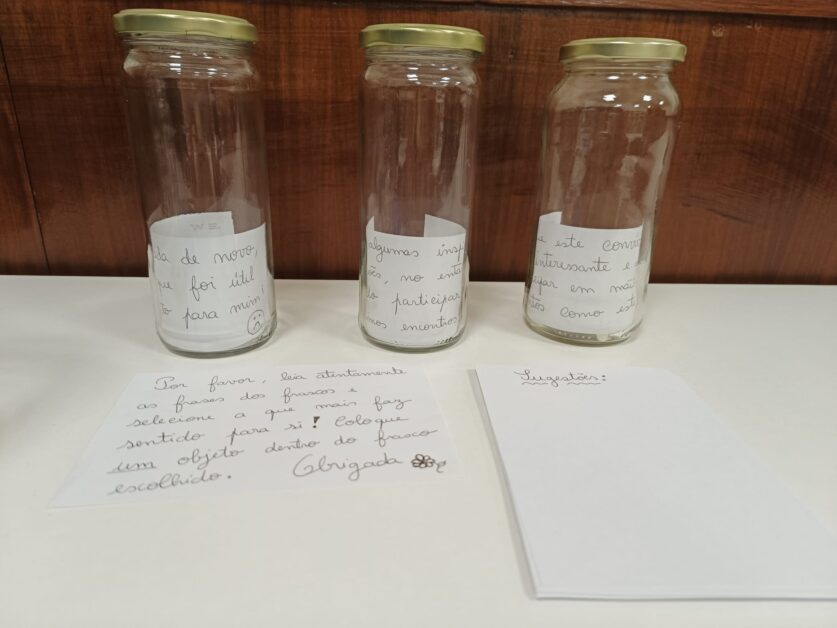 da de novo,
ue foi útil
to para mim!
algumas insp
ões, no enta
o participar
mos encontros
e este conv
interessante e
ipar em mais
tos como est
Por favor, leia atentamente
as frases dos frascos e
selecione a que mais faz
sentido para si! Coloque
um objeto dentro do frasco
escolhido. Obrigada
Sugestões: